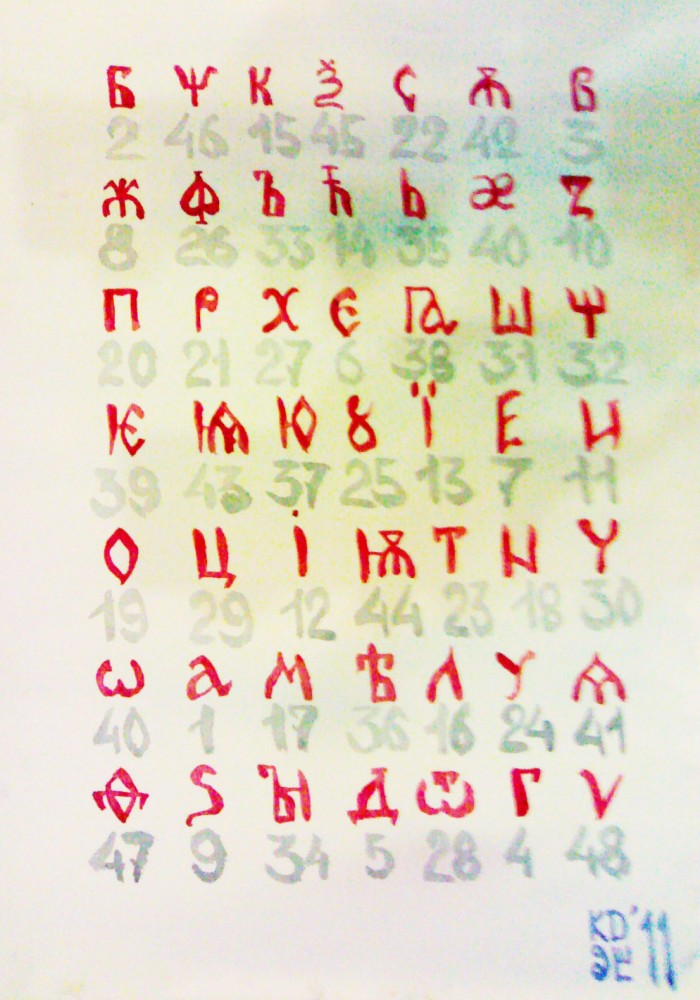 Б Ѱ К Ѯ Ҁ Ѫ В
2 46 15 45 22 42 3
Ж Ф Ъ Ћ Ь Ԙ Ꙁ
8 26 33 14 35 40 10
П Р Х Є Ꙗ Ш Ψ
20 21 27 6 38 31 32
Ѥ Ѩ Ю Ȣ Ї Е И
39 43 37 25 13 7 11
О Ц І Ѭ Т Н Ү
19 29 12 44 23 18 30
Ѡ а М Ѣ Л У Ѧ
40 1 17 36 16 24 41
Ѳ Ѕ ЪІ Д Ѿ Г Ѵ
47 9 34 5 28 4 48
KD'11
ЭЕ